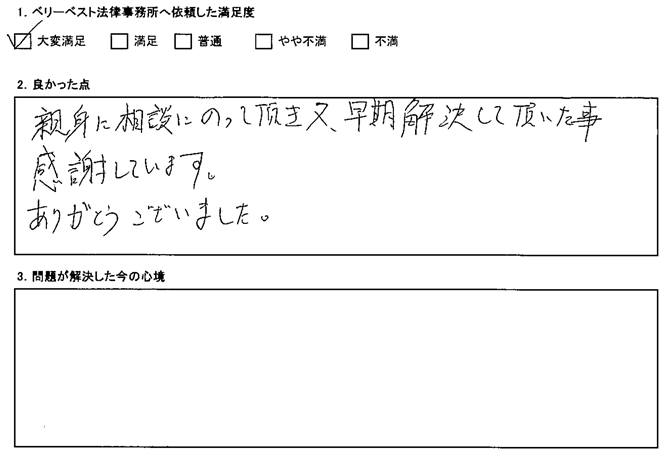 1. ベリーベスト法律事務所へ依頼した満足度
大変満足 満足 普通 やや不満 不満
2. 良かった点
親身に相談にのって頂き又、早期解決して頂いた事
感謝しています。
ありがとうございました。
3. 問題が解決した今の心境